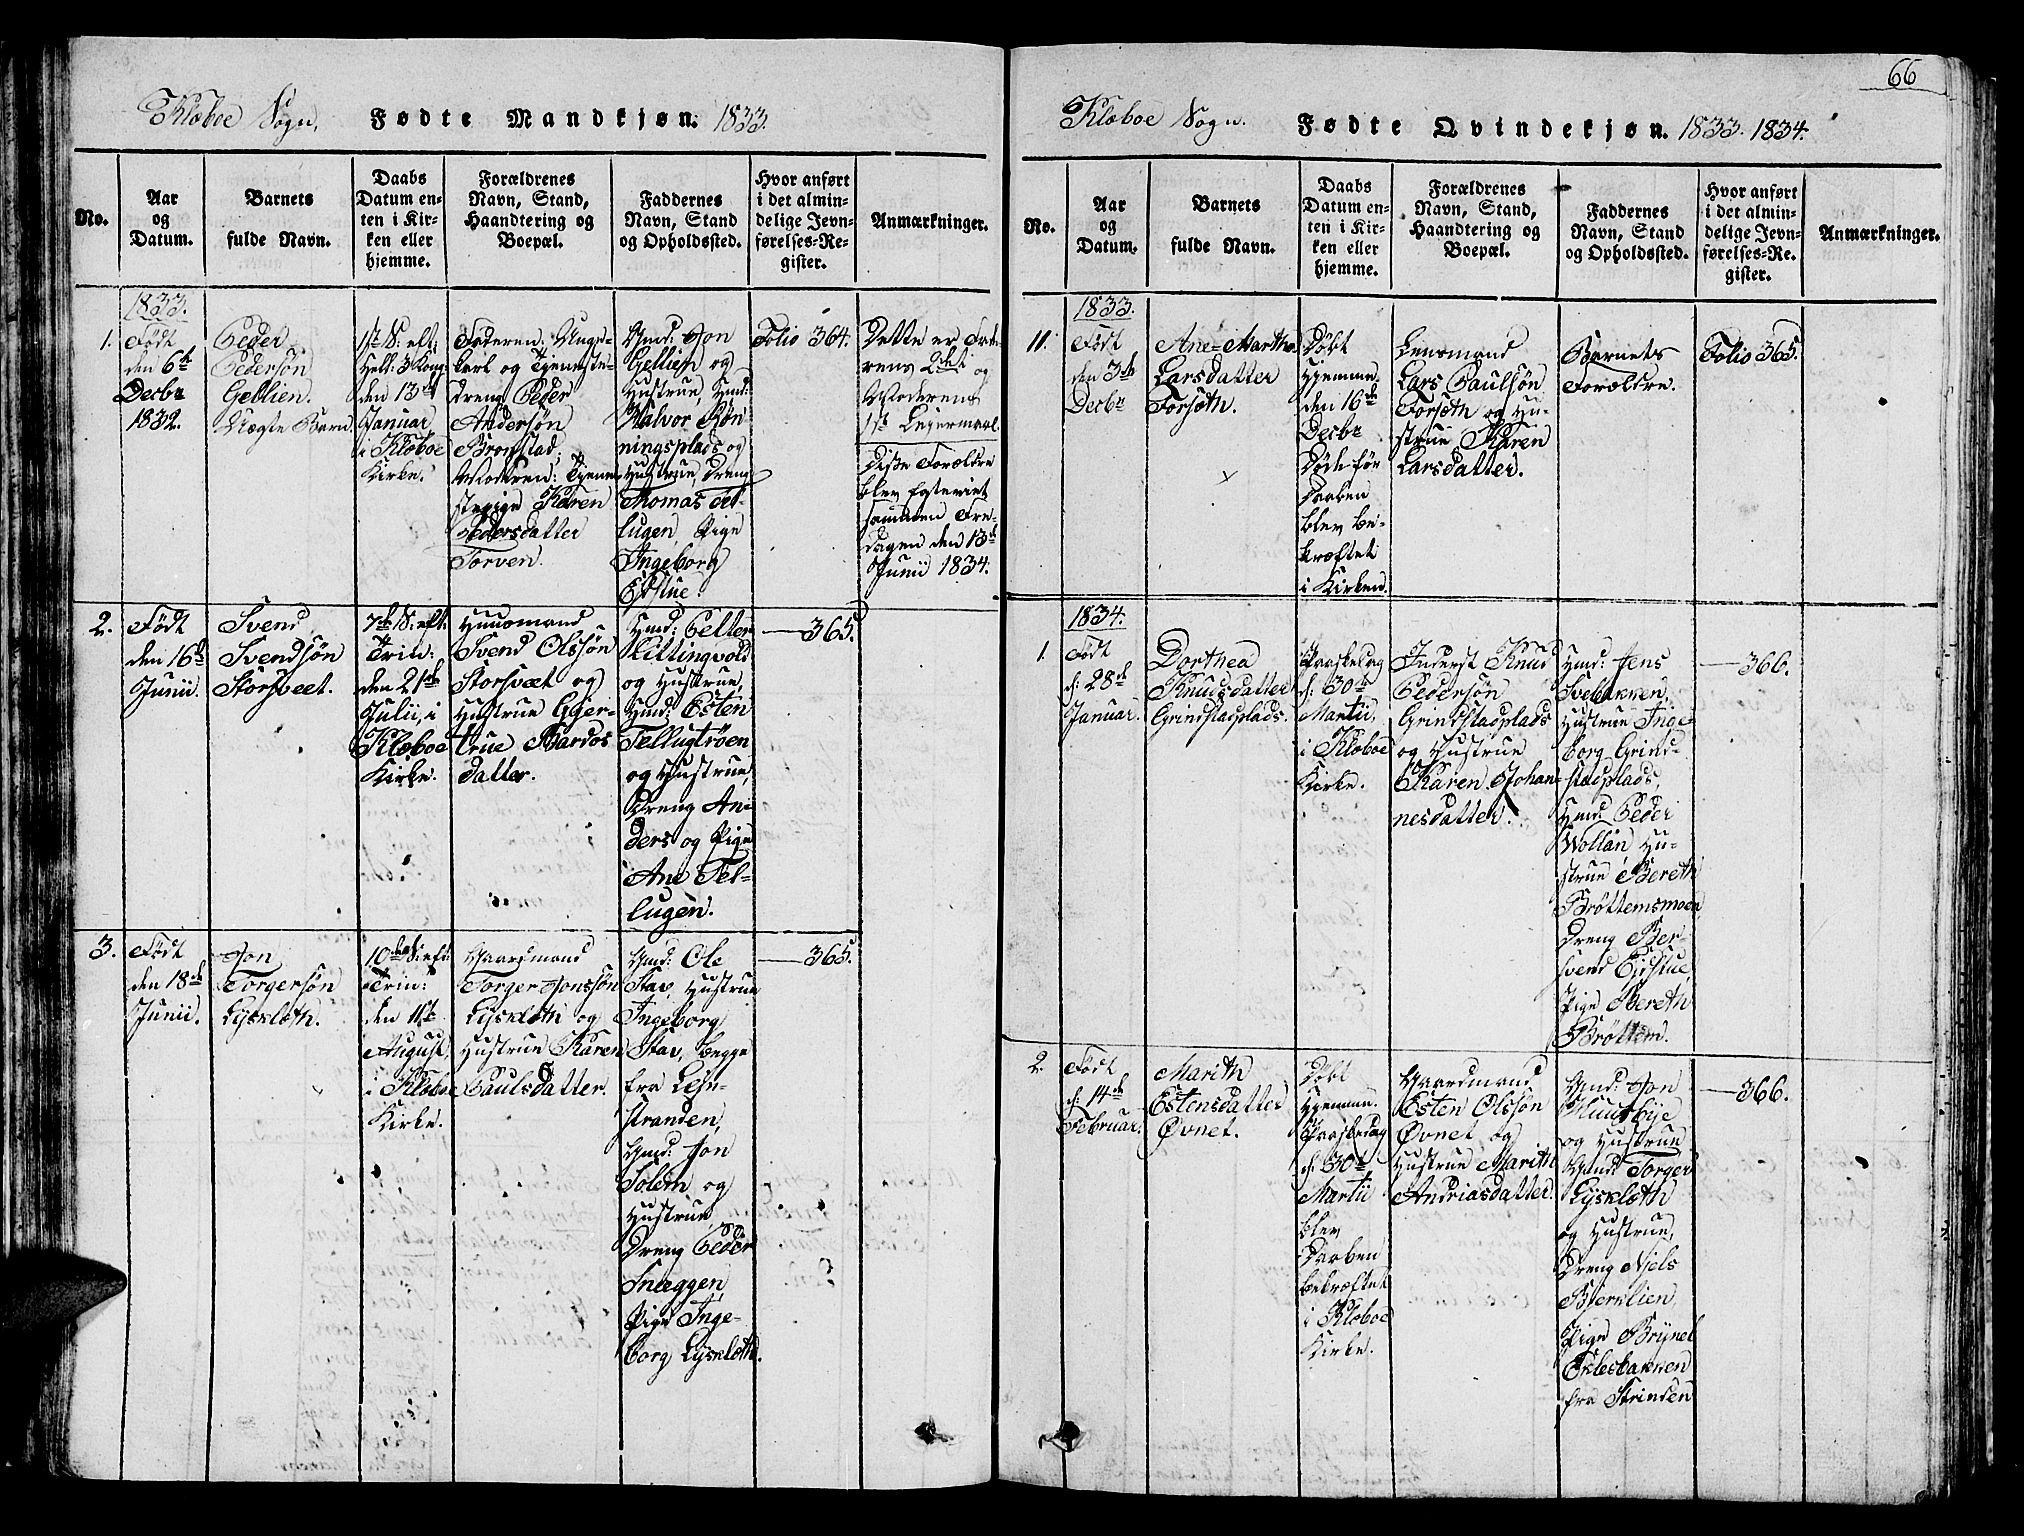 66
Klæboe Sogn. Fødte Mandkjøn. 1833.
No.
Aar
og
Datum.
Barnets
fulde Navn.
Daabs
Datum en-
ten i Kir-
ken eller
hjemme.
Forældrenes
Navn, Stand,
Haandtering og
Boepæl.
Faddernes
Navn, Stand
og Opholdssted.
Hvor anført
i det almin-
delige Jevn-
førelses-Re-
gister.
Anmærkninger.
1833.
1.
Født
den 6te
Decbr
1832.
Peder
Pedersøn
Gellien.
Uægte Barn
1ste S: eft:
Hell: 3 Kong.
den 13de
Januar
i Klæboe
Kirke.
Faderen: Unge-
karl og Tjeneste-
dreng Peder
Andersøn
Bromstad,
Moderen: Tjene-
stepige Karen
Pedersdatter
Torven.
Gmd: Jon
Gellien og
Hustrue, Hmd:
Halvor Røn-
ningsplads og
Hustrue, Dreng
Thomas Tel-
lugen, Pige
Ingeborg
Eidstue.
Folio 364.
Dette er Fade-
rens 2det og
Moderens
1ste Leiermaal.
Disse Forældre
blev Egteviet
sammen Fre-
dagen den 13de
Junii 1834.
2.
Født
den 16de
Junii.
Svend
Svendsøn
Storsveet.
7de S: eft:
Trin:
den 21de
Julii, i
Klæboe
Kirke.
Huusmand
Svend Olssøn
Storsvæt og
Hustrue Gjer-
true Bardos
datter.
Hmd: Petter
Kittingvold
og Hustrue,
Hmd: Esten
Tellugtrøen
og Hustrue,
Dreng An-
ders og Pige
Ane Tel-
lugen.
365.
3.
Født
den 18de
Junii.
Jon
Torgersøn
Lysklæth.
10de S: eft:
Trin:
den 11te
August,
i Klæboe
Kirke.
Gaardmand
Torger Jonssøn
Lysklæth og
Hustrue Karen
Paulsdatter.
Gmd: Ole
Stav, Hustrue
Ingeborg
Stav, begge
fra Lein-
stranden,
Gmd: Jon
Solem og
Hustrue,
Dreng Peder
Sneggen,
Pige Inge-
borg Lysklæth.
365.
Klæboe Sogn. Fødte Qvindekjøn. 1833. 1834.
No.
Aar
og
Datum.
Barnets
fulde Navn.
Daabs
Datum en-
ten i Kir-
ken eller
hjemme.
Forældrenes
Navn, Stand,
Haandtering og
Boepæl.
Faddernes
Navn, Stand
og Opholdssted.
Hvor anført
i det almin-
delige Jevn-
førelses-Re-
gister.
Anmærkninger.
1833.
11.
Født
den 3de
Decbr
Ane-Martha
Larsdatter
Forsæth.
Døbt
hjemme
den 16de
Decbr
Døde før
Daaben
blev be-
kræftet
i Kirken.
Lensmand
Lars Paulsøn
Forsæth og Hu-
strue Karen
Larsdatter.
Barnets
Forældre.
Folio 365.
1834.
1.
Født
d: 28de
Januar.
Dorthea
Knudsdatter
Grindstadplads.
Paaskedag
d: 30te
Martii,
i Klæboe
Kirke.
Inderst Knud
Pedersøn
Grindstadplads
og Hustrue
Karen Johan-
nesdatter.
Hmd: Jens
Svebakken,
Hustrue Inge-
borg Grind-
stadplads,
Hmd: Peder
Wollan, Hu-
strue Bereth
Brøttemsmoen
Dreng Ber-
svend Eidstue,
Pige Bereth
Brøttem.
366.
2.
Født
d: 14de
Februar.
Marith
Estensdatter
Øvnet.
Døbt
hjemme.
Paaskedag
d: 30te
Martii
blev
Daaben
bekræftet
i Klæboe
Kirke.
Gaardmand
Esten Olssøn
Øvnet og
Hustrue Marith
Andriasdatter.
Gmd: Jon
Huusbye
og Hustrue
Gmd: Torger
Lysklæth
og Hustrue,
Dreng Niels
Bjerklien,
Pige Brynel
Eklesbakken
fra Strinden
366.